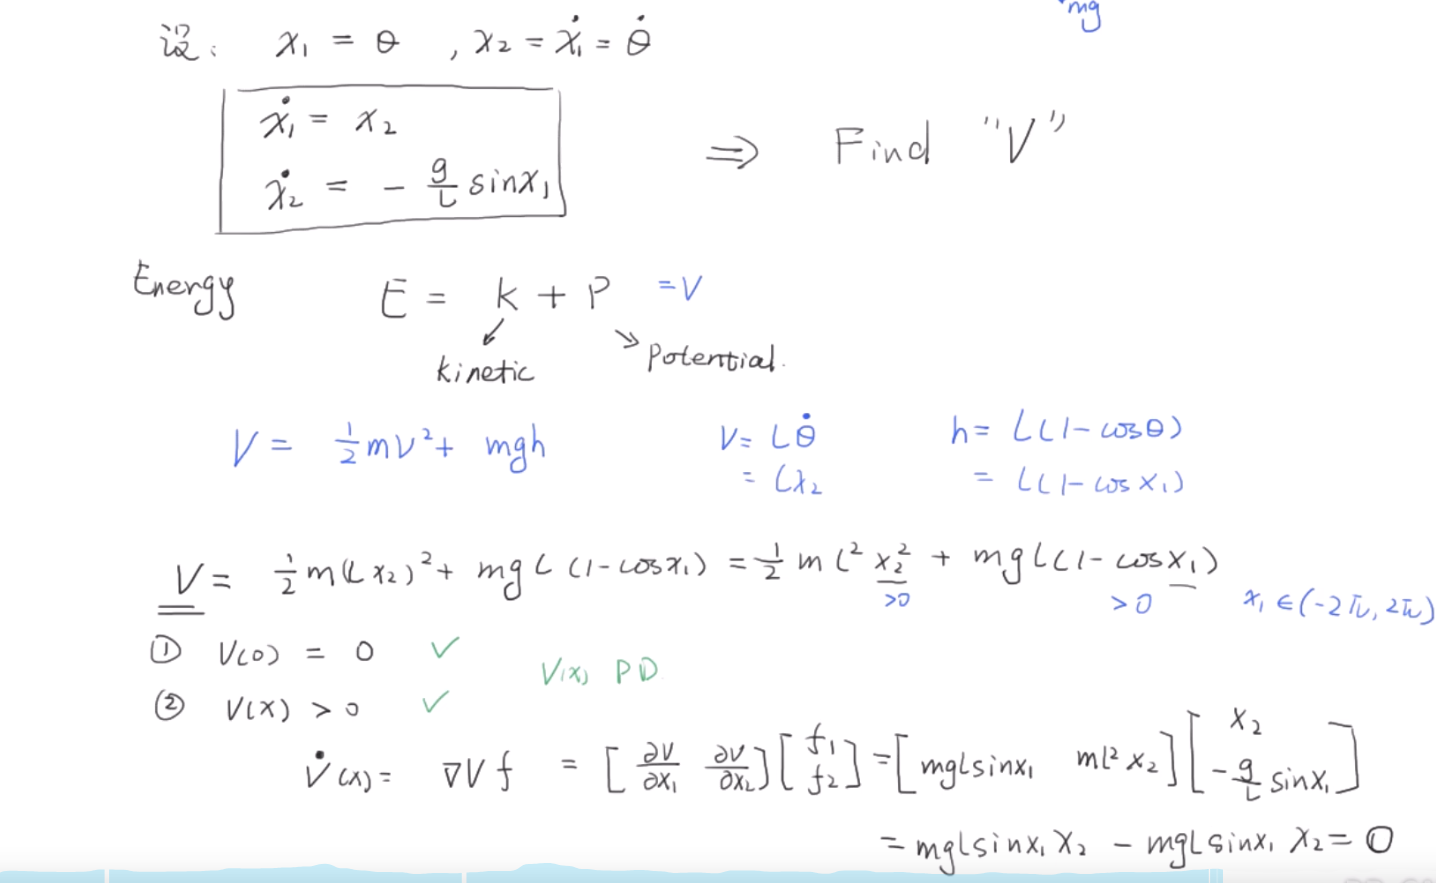 mg
设: x₁ = θ , x₂ = ẋ₁ = θ̇
ẋ₁ = x₂
ẋ₂ = - g/L sinx₁
⇒ Find "V"
Energy E = K + P = V
kinetic
Potential.
V = ½mv² + mgh
v = Lθ̇
= Lx₂
h = L(1-cosθ)
= L(1-cosx₁)
V = ½m(Lx₂)² + mgL(1-cosx₁) = ½mL²x₂² + mgL(1-cosx₁)
>0 >0 x₁∈(-2π, 2π)
① V(0) = 0 ✓
V(x) PD
② V(x) > 0 ✓
V̇(x) = ∇V f = [∂V/∂x₁ ∂V/∂x₂][f₁ f₂] = [mgLsinx₁ mL²x₂][x₂ -g/L sinx₁]
= mgLsinx₁x₂ - mgLsinx₁x₂ = 0